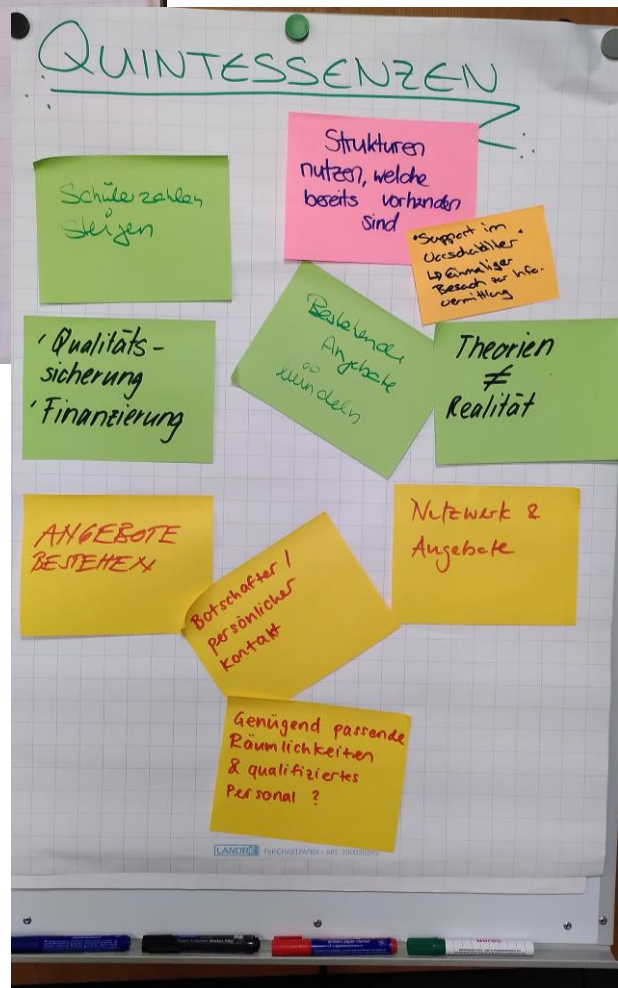 QUINTESSENZEN
Strukturen
nutzen, welche
bereits vorhanden
sind
Schülerzahlen
steigen
• Support im
Vorschulalter
↳ Einmaliger
Besuch zur Info-
vermittlung
' Qualitäts-
sicherung
' Finanzierung
Bestehende
Angebote
bündeln
Theorien
≠
Realität
ANGEBOTE
BESTEHEN
Botschafter /
persönlicher
Kontakt
Netzwerk &
Angebote
Genügend passende
Räumlichkeiten
& qualifiziertes
Personal ?
LANDRÉ FLIPCHARTPAPIER - ART.